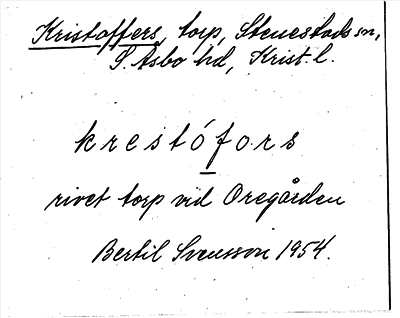 Kristoffers, torp, Stenestads sn,
S. Åsbo hd, Krist. l.
krestófors
rivet torp vid Oregården
Bertil Svensson 1954.